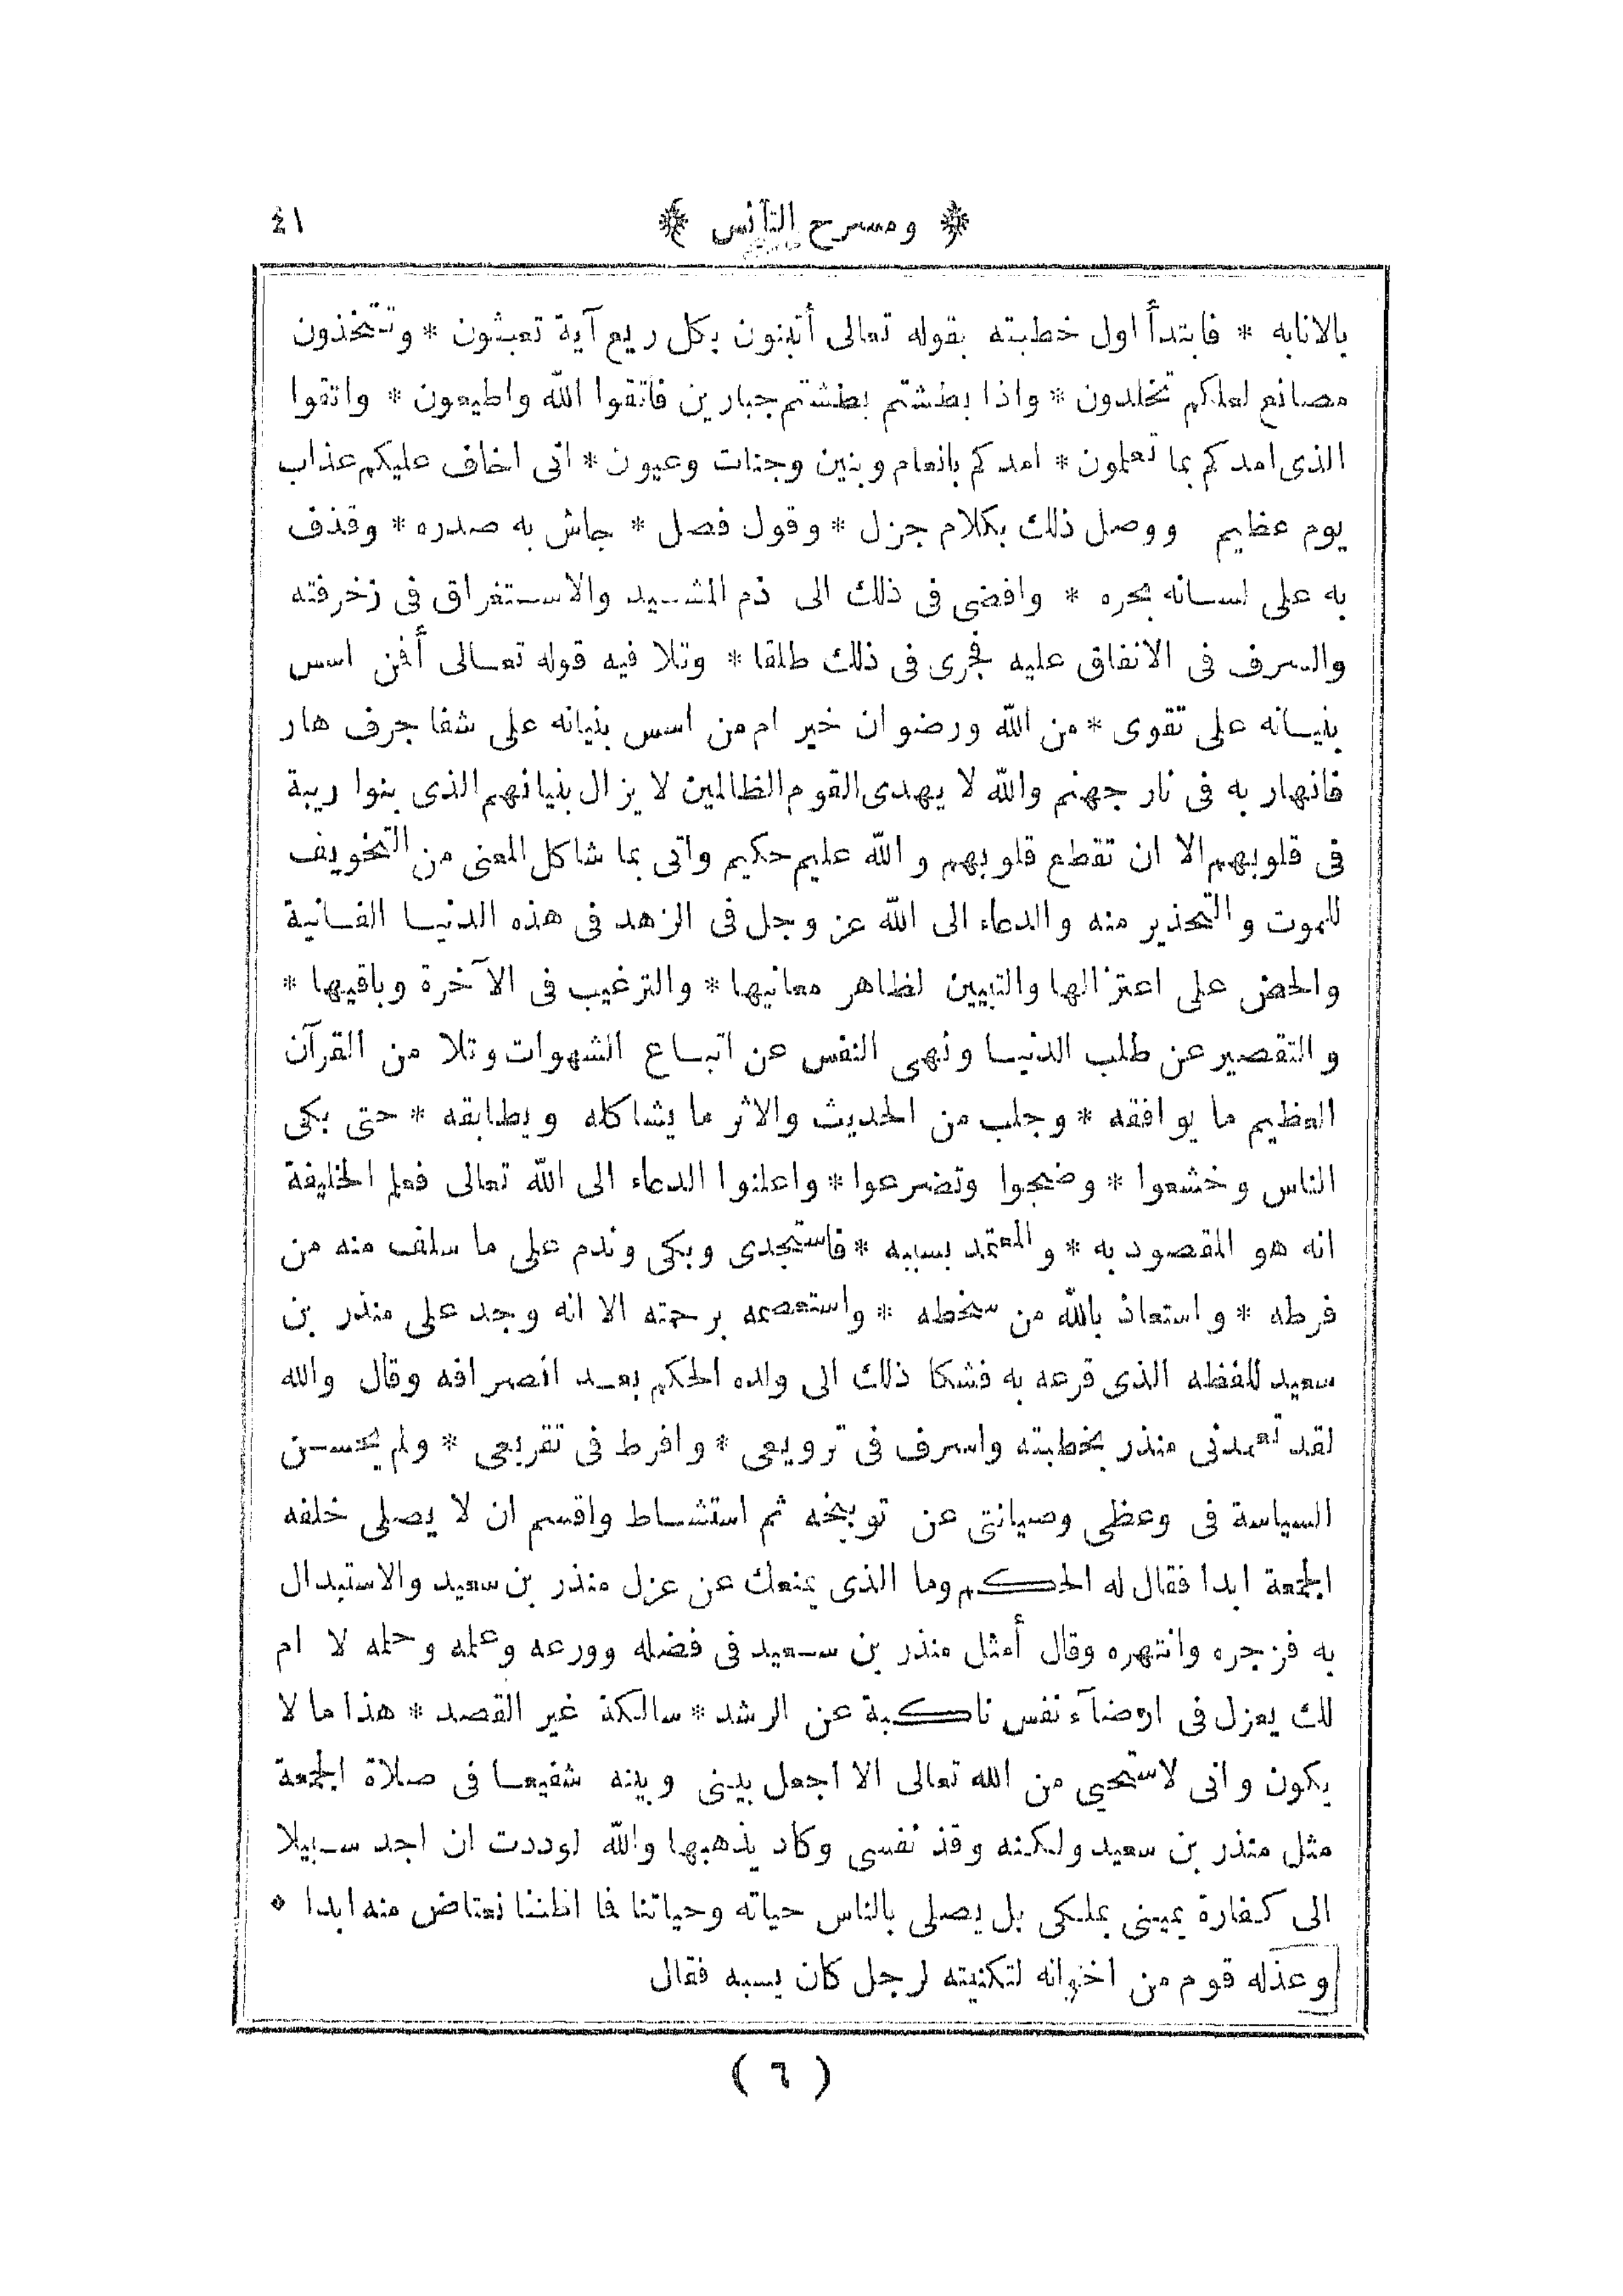 ﴿ ومسرح التآنس ﴾ ٤١
بالانابه * فابتدأ اول خطبته بقوله تعالى أتبنون بكل ريع آية تعبثون * وتتخذون
مصانع لعلكم تخلدون * واذا بطشتم بطشتم جبارين فاتقوا الله واطيعون * واتقوا
الذى امدكم بما تعلمون * امدكم بانعام وبنين وجنات وعيون * انى اخاف عليكم عذاب
يوم عظيم ووصل ذلك بكلام جزل * وقول فصل * جاش به صدره * وقذف
به على لسانه بحره * وافضى فى ذلك الى ذم المشيد والاستغراق فى زخرفته
والسرف فى الانفاق عليه فجرى فى ذلك طلقا * وتلا فيه قوله تعالى أفمن اسس
بنيانه على تقوى * من الله ورضوان خير ام من اسس بنيانه على شفا جرف هار
فانهار به فى نار جهنم والله لا يهدى القوم الظالمين لا يزال بنيانهم الذى بنوا ريبة
فى قلوبهم الا ان تقطع قلوبهم والله عليم حكيم واتى بما شاكل المعنى من التخويف
للموت والتحذير منه والدعاء الى الله عز وجل فى الزهد فى هذه الدنيا الفانية
والحض على اعتزالها والتبيين لظاهر معانيها * والترغيب فى الآخرة وباقيها *
والتقصير عن طلب الدنيا ونهى النفس عن اتباع الشهوات وتلا من القرآن
العظيم ما يوافقه * وجلب من الحديث والاثر ما يشاكله ويطابقه * حتى بكى
الناس وخشعوا * وضجوا وتضرعوا * واعلنوا الدعاء الى الله تعالى فعلم الخليفة
انه هو المقصود به * والمعتمد بسببه * فاستجدى وبكى وندم على ما سلف منه من
فرطه * واستعاذ بالله من سخطه * واستعصمه برحمته الا انه وجد على منذر بن
سعيد للفظه الذى قرعه به فشكا ذلك الى ولده الحكم بعد انصرافه وقال والله
لقد تعمدنى منذر بخطبته واسرف فى ترويعى * وافرط فى تقريعى * ولم يحسن
السياسة فى وعظى وصيانتى عن توبيخه ثم استشاط واقسم ان لا يصلى خلفه
الجمعة ابدا فقال له الحكم وما الذى يمنعك عن عزل منذر بن سعيد والاستبدال
به فزجره وانتهره وقال أمثل منذر بن سعيد فى فضله وورعه وعلمه وحلمه لا ام
لك يعزل فى ارضآء نفس ناكبة عن الرشد * سالكة غير القصد * هذا ما لا
يكون وانى لاستحيي من الله تعالى الا اجعل بينى وبينه شفيعا فى صلاة الجمعة
مثل منذر بن سعيد ولكنه وقذ نفسى وكاد يذهبها والله لوددت ان اجد سبيلا
الى كفارة يمينى بملكى بل يصلى بالناس حياته وحياتنا فما اظننا نعتاض منه ابدا *
وعذله قوم من اخوانه لتكنيته لرجل كان يسبه فقال
( ٦ )